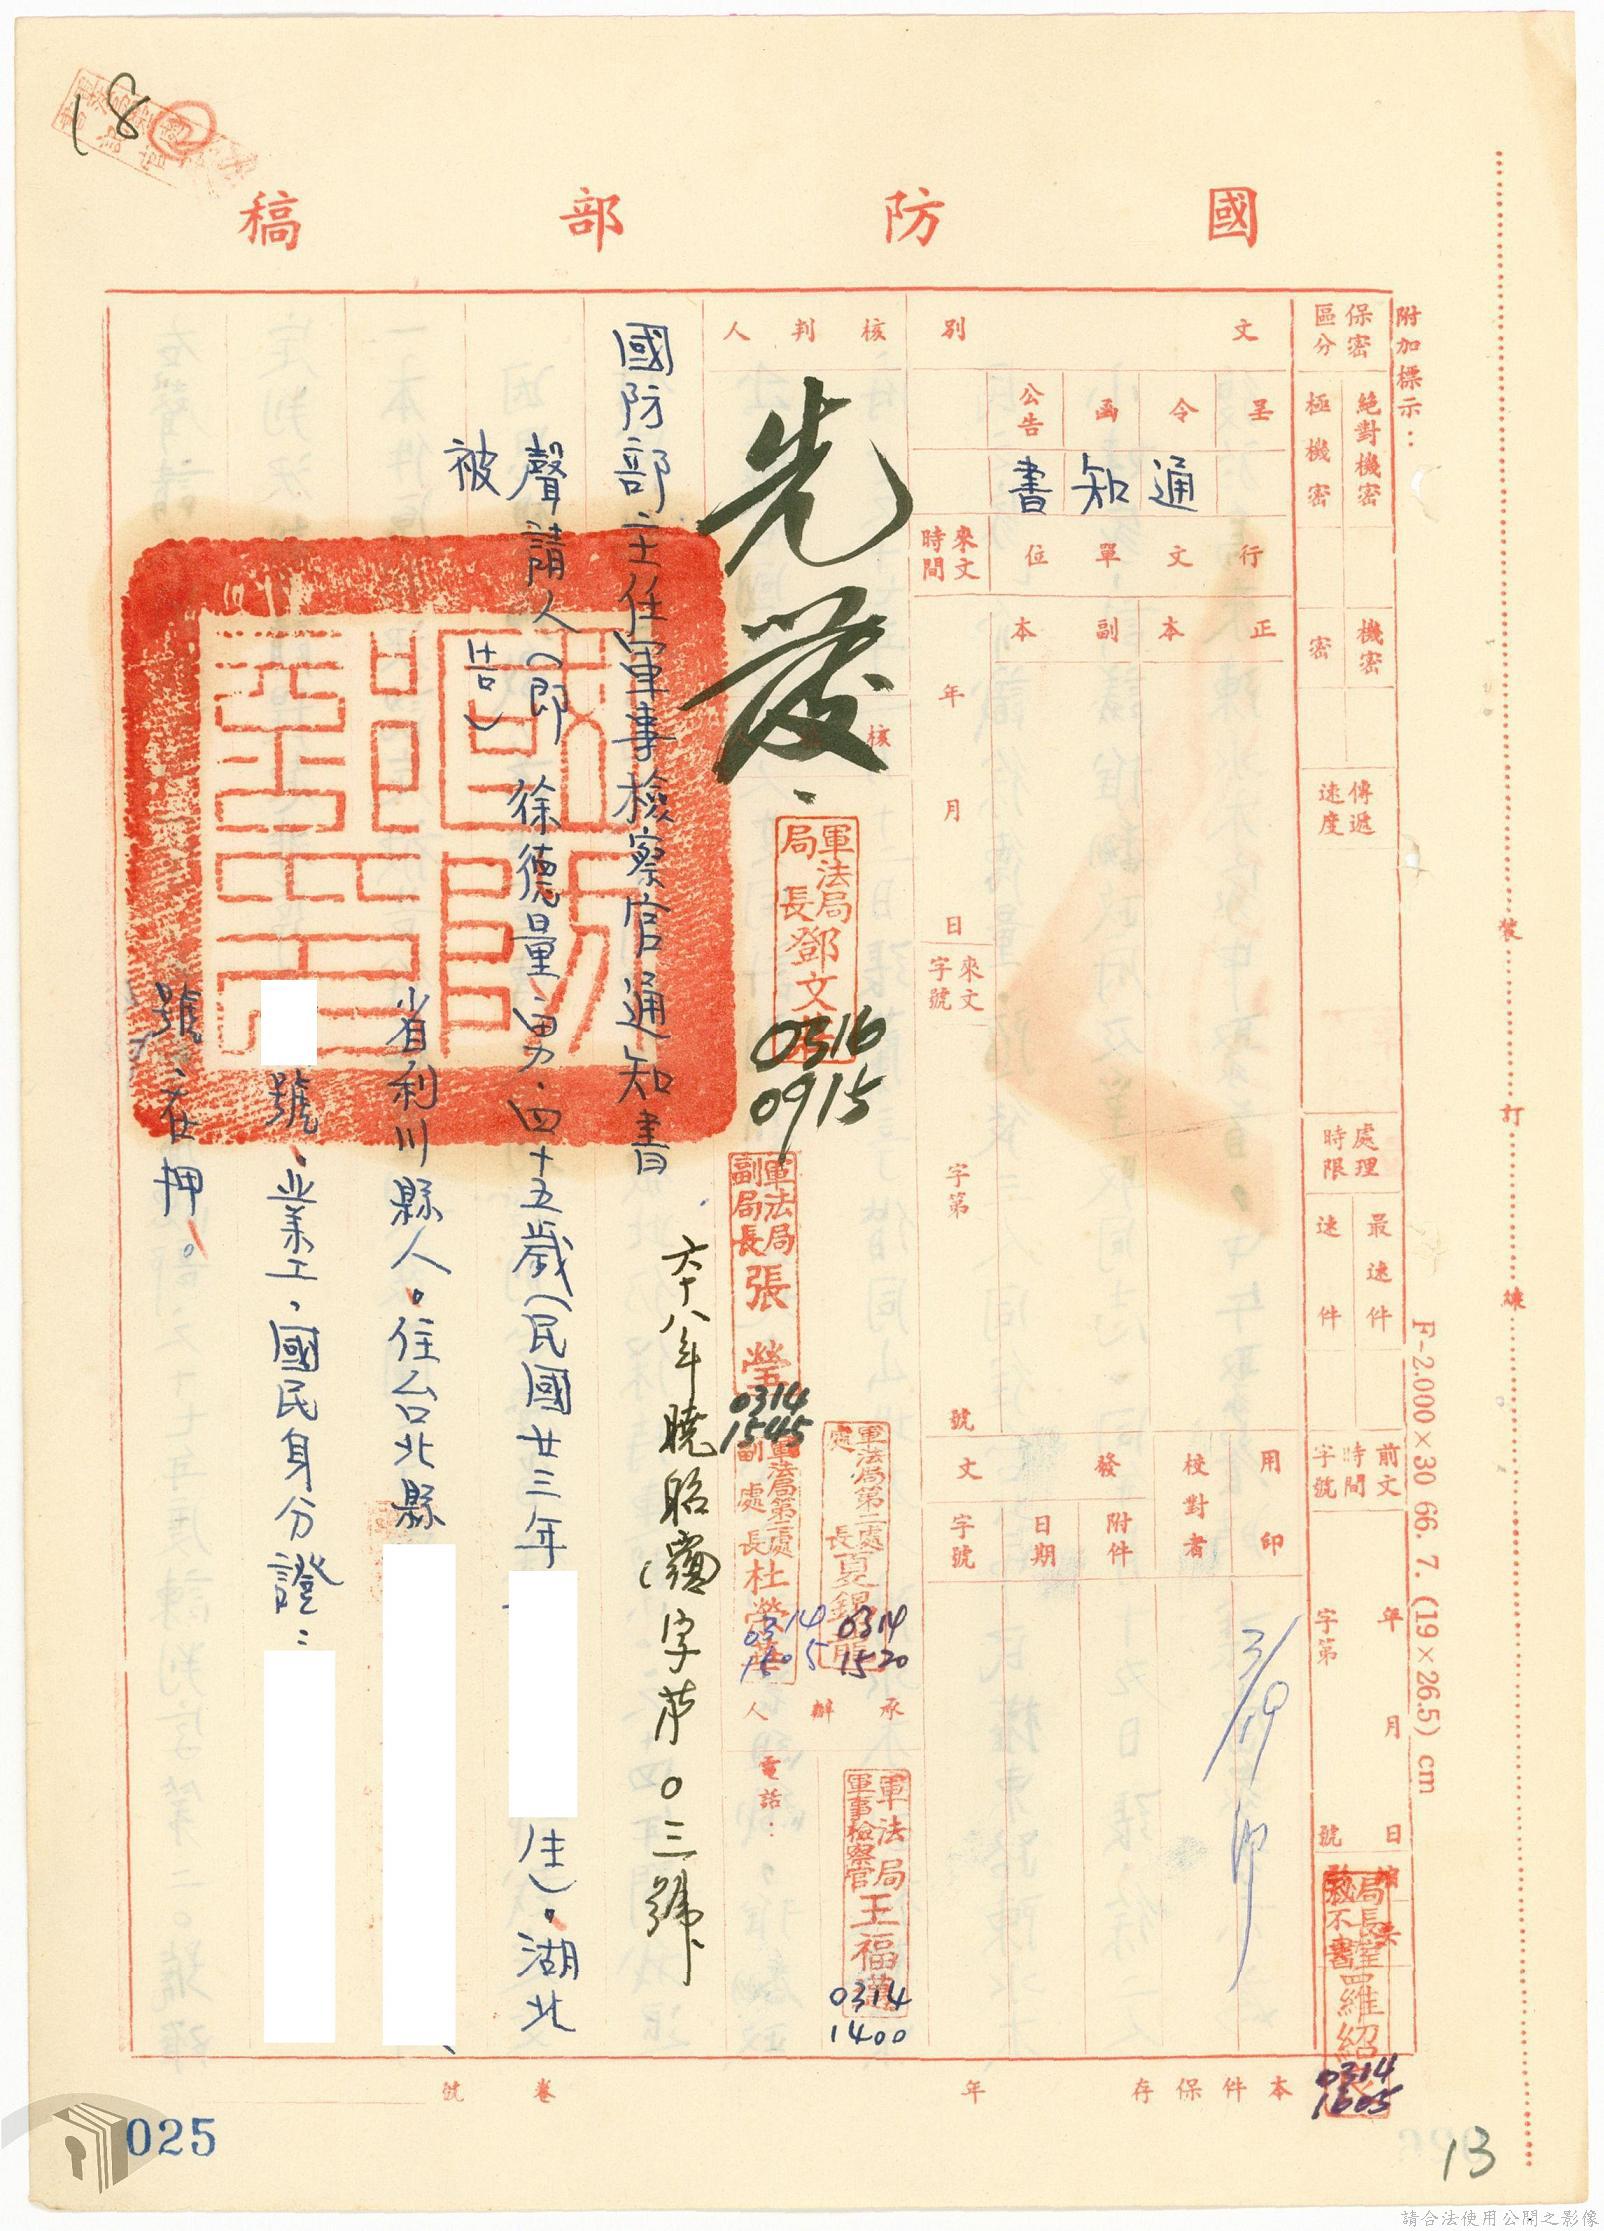 18
國防部稿
附加標示：
保密區分
絕對機密
極機密
機密
密
傳遞速度
處理時限
最速件
速件
前文時間字號
年月日
字第號
文別
呈
令
函
公告
通知書
行文單位
正本
副本
來文時間
年月日
來文字號
字第號
用印
3/19印
校對者
發文
附件
日期
字號
核判人
先發
軍法局局長鄧文
0316
0915
軍法局副局長張瑩
0314
1545
軍法局第二處處長夏錦
0314
1520
軍法局第二處副處長杜榮
0314
1505
承辦人
軍法局軍事檢察官王福
0314
1400
電話：
局長室羅紹
0314
1605
六十八年曉昭字第〇三號
國防部主任軍事檢察官通知書
聲請人(即
被告)
徐德量男、四十五歲(民國廿三年
生)。湖北
省利川縣人。住台北縣
號、業工，國民身分證：
號、在押。
本件保存年
卷號
裝訂線
F-2.000×30 66. 7. (19×26.5) cm
025
13
請合法使用公開之影像